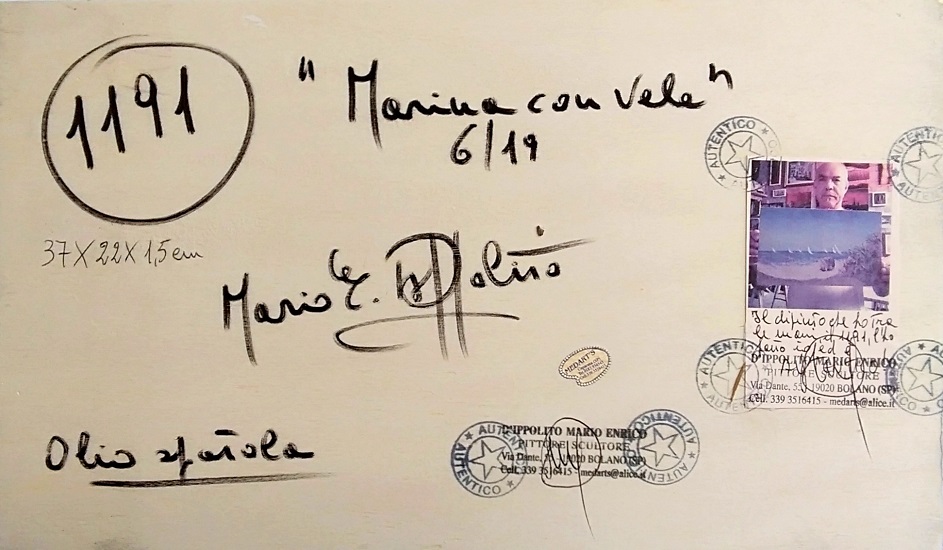 1191
"Marina con vele"
6/19
37X22X1,5cm
Mario E. D'Ippolito
Olio spatola
AUTENTICO
AUTENTICO
Il dipinto che ho tra
le mani è il 1191, l'ho
fatto io ed è
AUTENTICO
D'IPPOLITO MARIO ENRICO
PITTORE SCULTORE
Via Dante, 55 - 19020 BOLANO (SP)
Cell. 339 3516415 - medarts@alice.it
AUTENTICO
AUTENTICO
MEDART'S
D'IPPOLITO MARIO ENRICO
PITTORE SCULTORE
Via Dante, 55 - 19020 BOLANO (SP)
Cell. 339 3516415 - medarts@alice.it
AUTENTICO
AUTENTICO